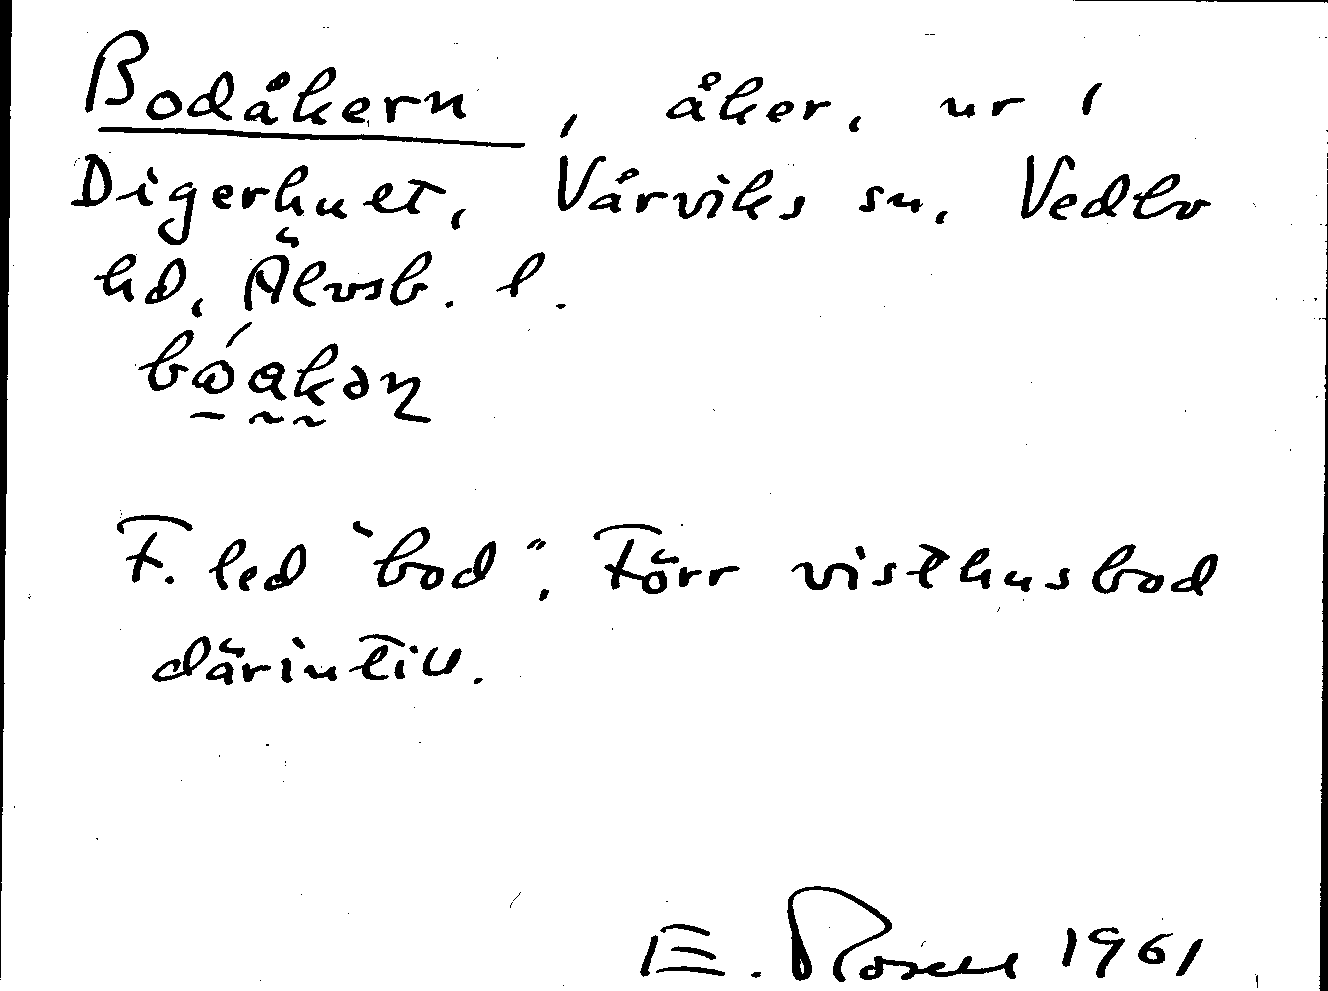 Bodåkern, åker, nr 1
Digerhult, Vårviks sn, Vedbo
hd, Älvsb. l.
F. led "bod". Förr visthusbod
därintill.
E. Rosell 1961